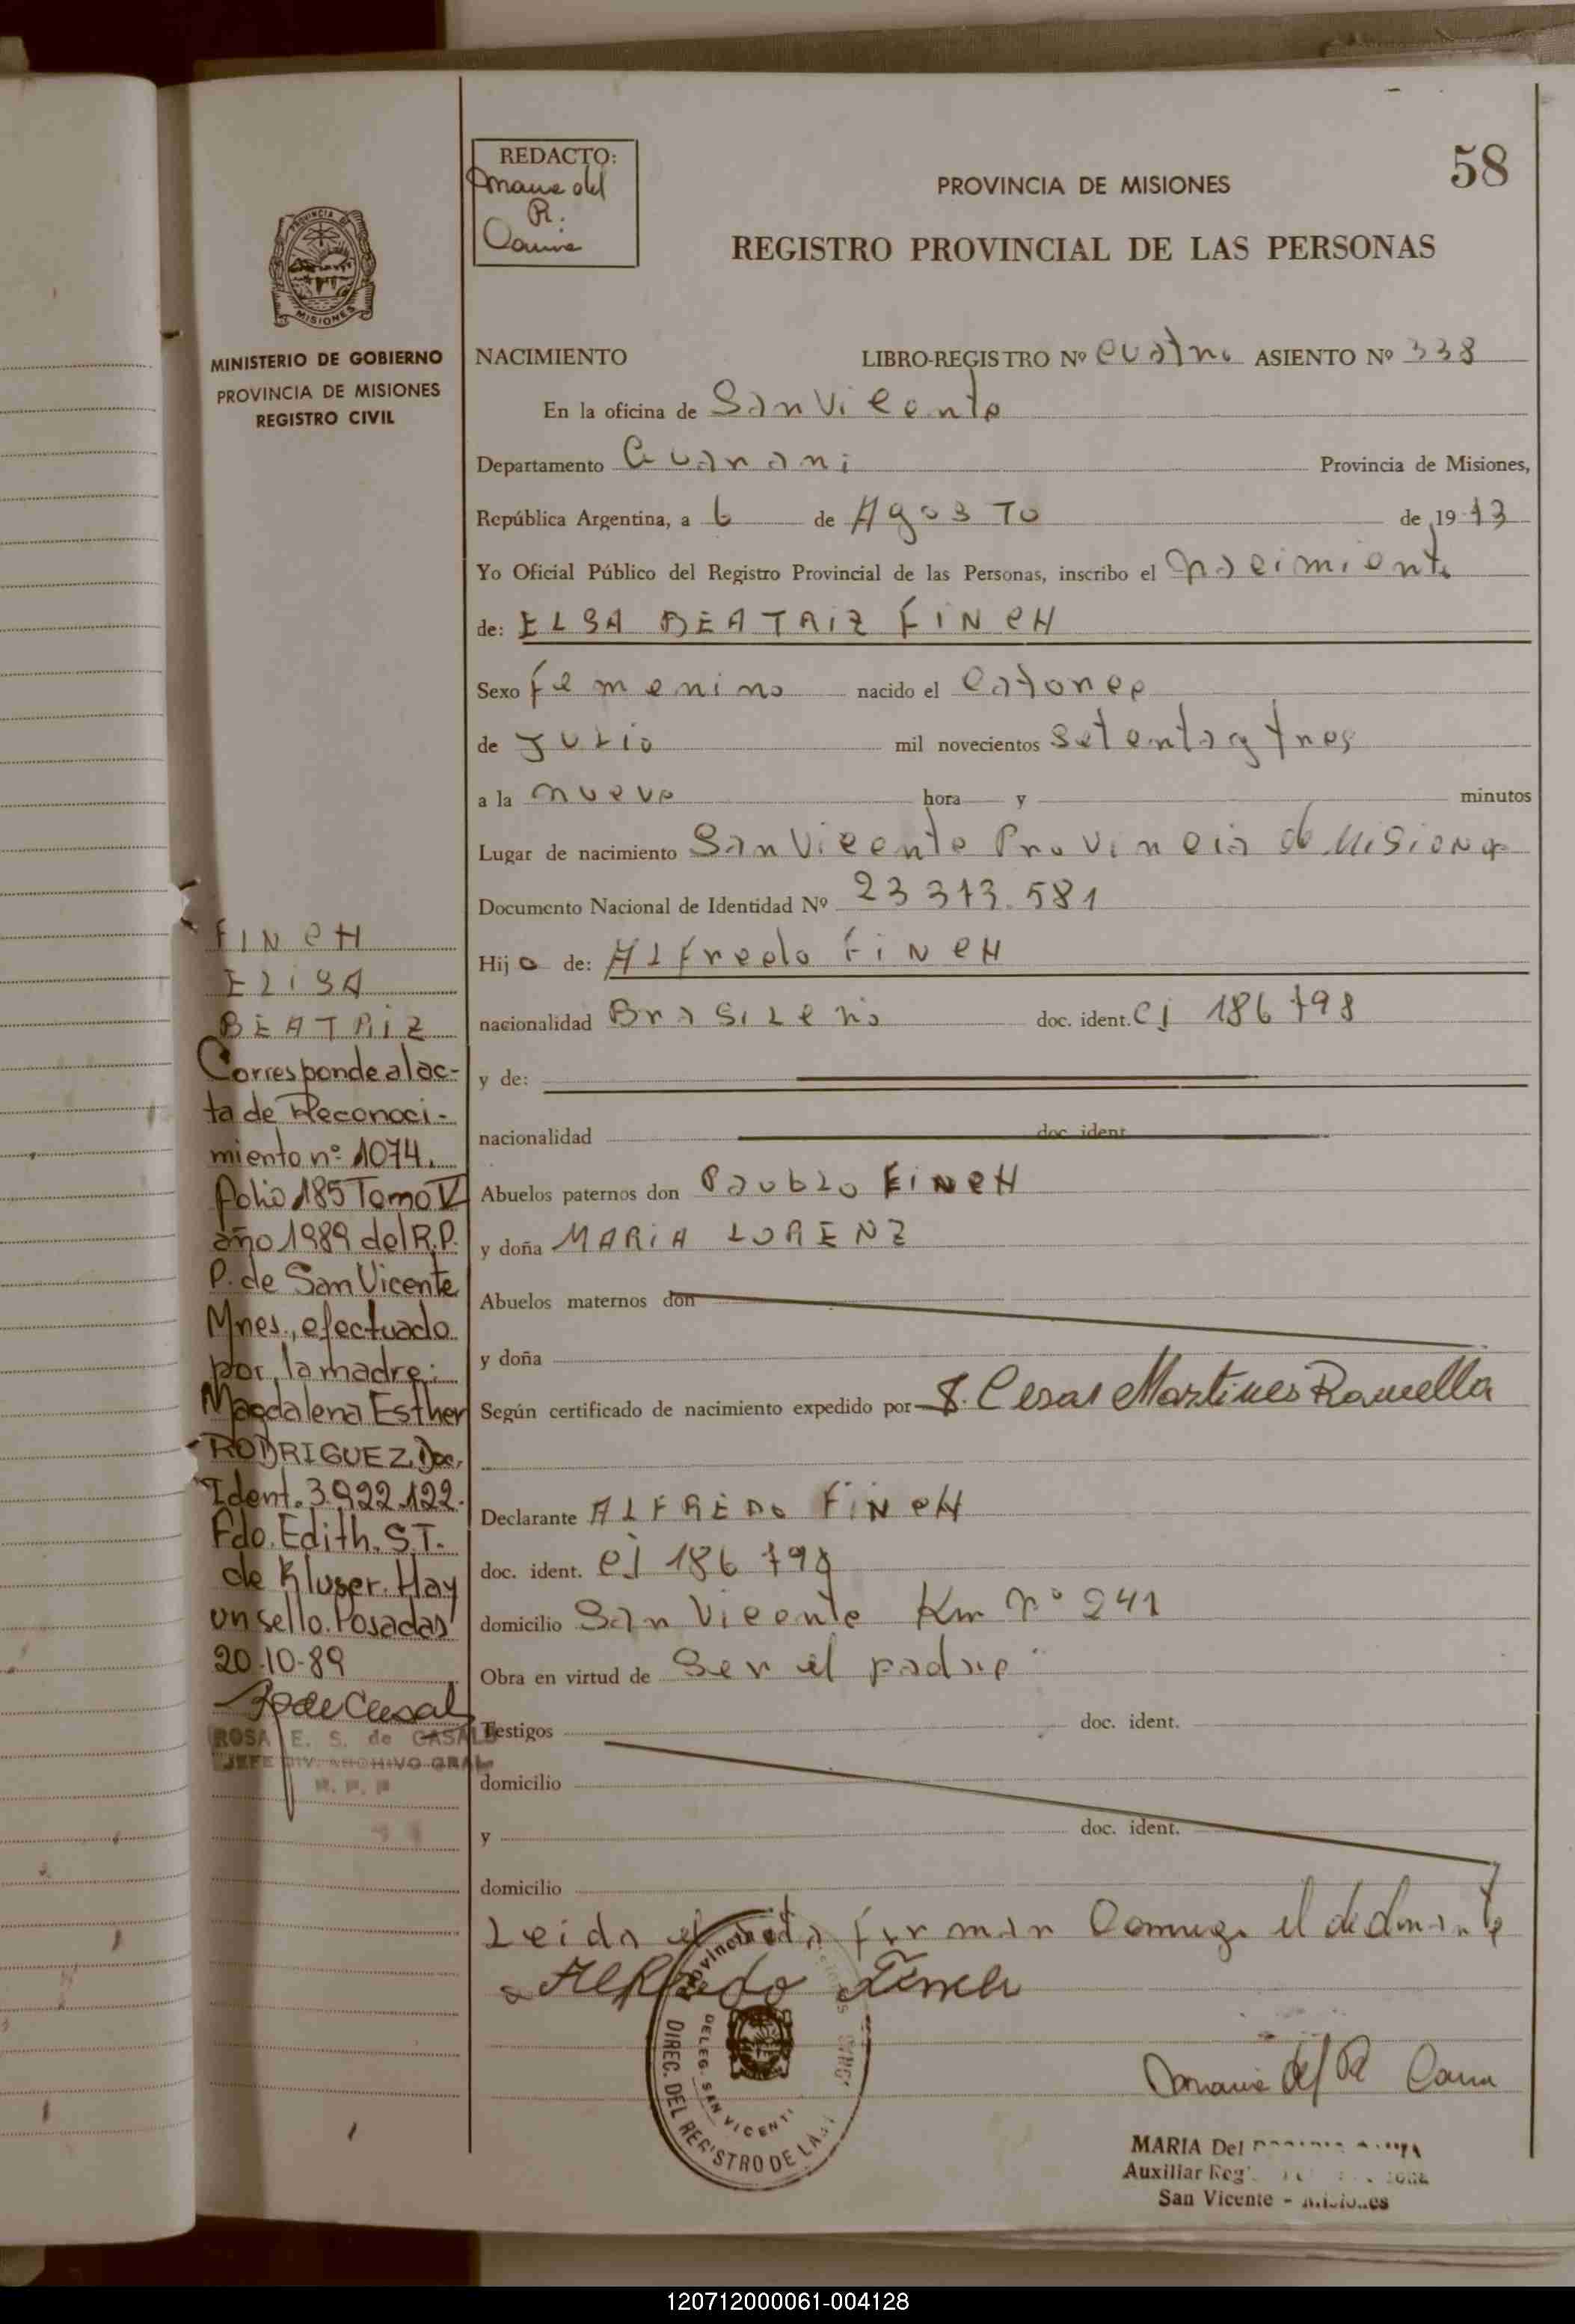 58
REDACTO:
Maria del
R.
PROVINCIA DE MISIONES
REGISTRO PROVINCIAL DE LAS PERSONAS
PROVINCIA DE
MISIONES
MINISTERIO DE GOBIERNO
PROVINCIA DE MISIONES
REGISTRO CIVIL
NACIMIENTO LIBRO-REGISTRO Nº cuatro ASIENTO Nº 338
En la oficina de San Vicente
Departamento Guarani Provincia de Misiones,
República Argentina, a 6 de Agosto de 1973
Yo Oficial Público del Registro Provincial de las Personas, inscribo el nacimiento
de: ELSA BEATRIZ FINCH
Sexo femenino nacido el catorce
de Julio mil novecientos setenta y tres
a la nueve hora y minutos
Lugar de nacimiento San Vicente Provincia de Misiones
Documento Nacional de Identidad Nº 23 373.581
Hija de: Alfredo FINCH
nacionalidad Brasileño doc. ident. CI 186798
y de:
nacionalidad doc. ident.
Abuelos paternos don Paublo FINCH
y doña MARIA LORENZ
Abuelos maternos don
y doña
Según certificado de nacimiento expedido por Cesar Martines Ramella
Declarante ALFREDO FINCH
doc. ident. CI 186798
domicilio San Vicente Km nº 241
Obra en virtud de ser el padre
Testigos doc. ident.
domicilio
y doc. ident.
domicilio
Leida el acta firman Conmigo el declarante
Alfredo Finch
DIREC. DEL REGISTRO DE LAS
DELEG. SAN VICENTE
MARIA Del
Auxiliar
San Vicente - Misiones
FINCH
ELISA
BEATRIZ
Corresponde al ac-
ta de Reconoci-
miento nº 1074.
folio 185 Tomo V
año 1989 del R.P.
P. de San Vicente
Mnes., efectuado
por la madre:
Magdalena Esther
RODRIGUEZ, Doc.
Ident. 3.922.122.
Fdo. Edith. S.T.
de Kluser. Hay
un sello. Posadas
20-10-89
ROSA E. S. de CASALS
JEFE DIV. ARCHIVO GRAL.
R. P. P
120712000061-004128